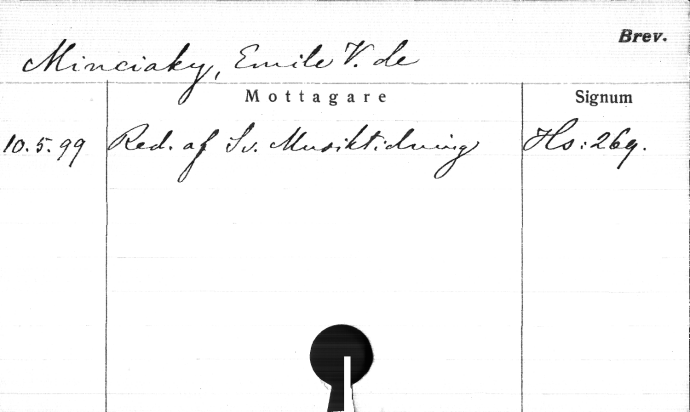 Brev.
Minciaky, Emile V. de
Mottagare Signum
10.5.99 Red. af Sv. Musiktidning Hs: 269.